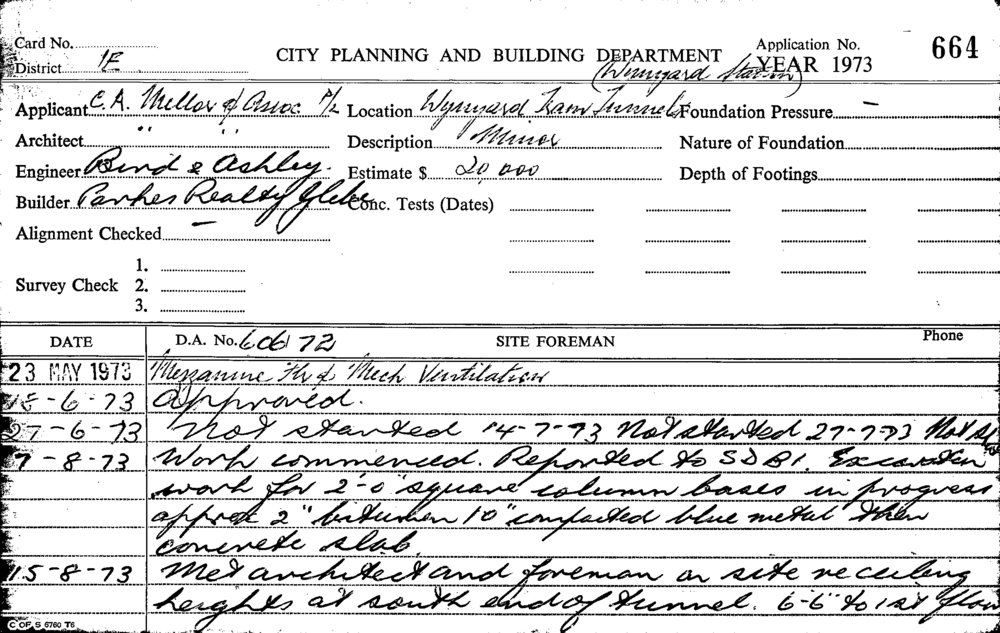 Card No.
CITY PLANNING AND BUILDING DEPARTMENT
Application No. 664
District 1E
(Wynyard Station)
YEAR 1973
Applicant C.A. Mellor & Assoc P/L Location Wynyard Tram Tunnels Foundation Pressure –
Architect " " Description Minor Nature of Foundation
Engineer Bird & Ashley. Estimate $ 20,000 Depth of Footings
Builder Parkes Realty Glebe Conc. Tests (Dates)
Alignment Checked –
1.
Survey Check 2.
3.
DATE D.A. No. 606/72 SITE FOREMAN Phone
23 MAY 1973 Mezzanine Flr & Mech Ventilation
-6-73 Approved.
27-6-73 Not started 14-7-73 Not started 27-7-73 Not
7-8-73 Work commenced. Reported to SDBI. Excavation
work for 2-0" square column bases in progress
approx 2" bitumen 10" compacted blue metal then
concrete slab.
15-8-73 Met architect and foreman on site re ceiling
heights at south end of tunnel. 6-6" to 1st floor
C OF S 6760 T6